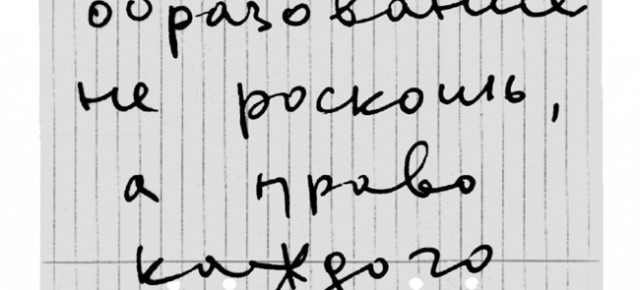 образование
не роскошь,
а право
каждого